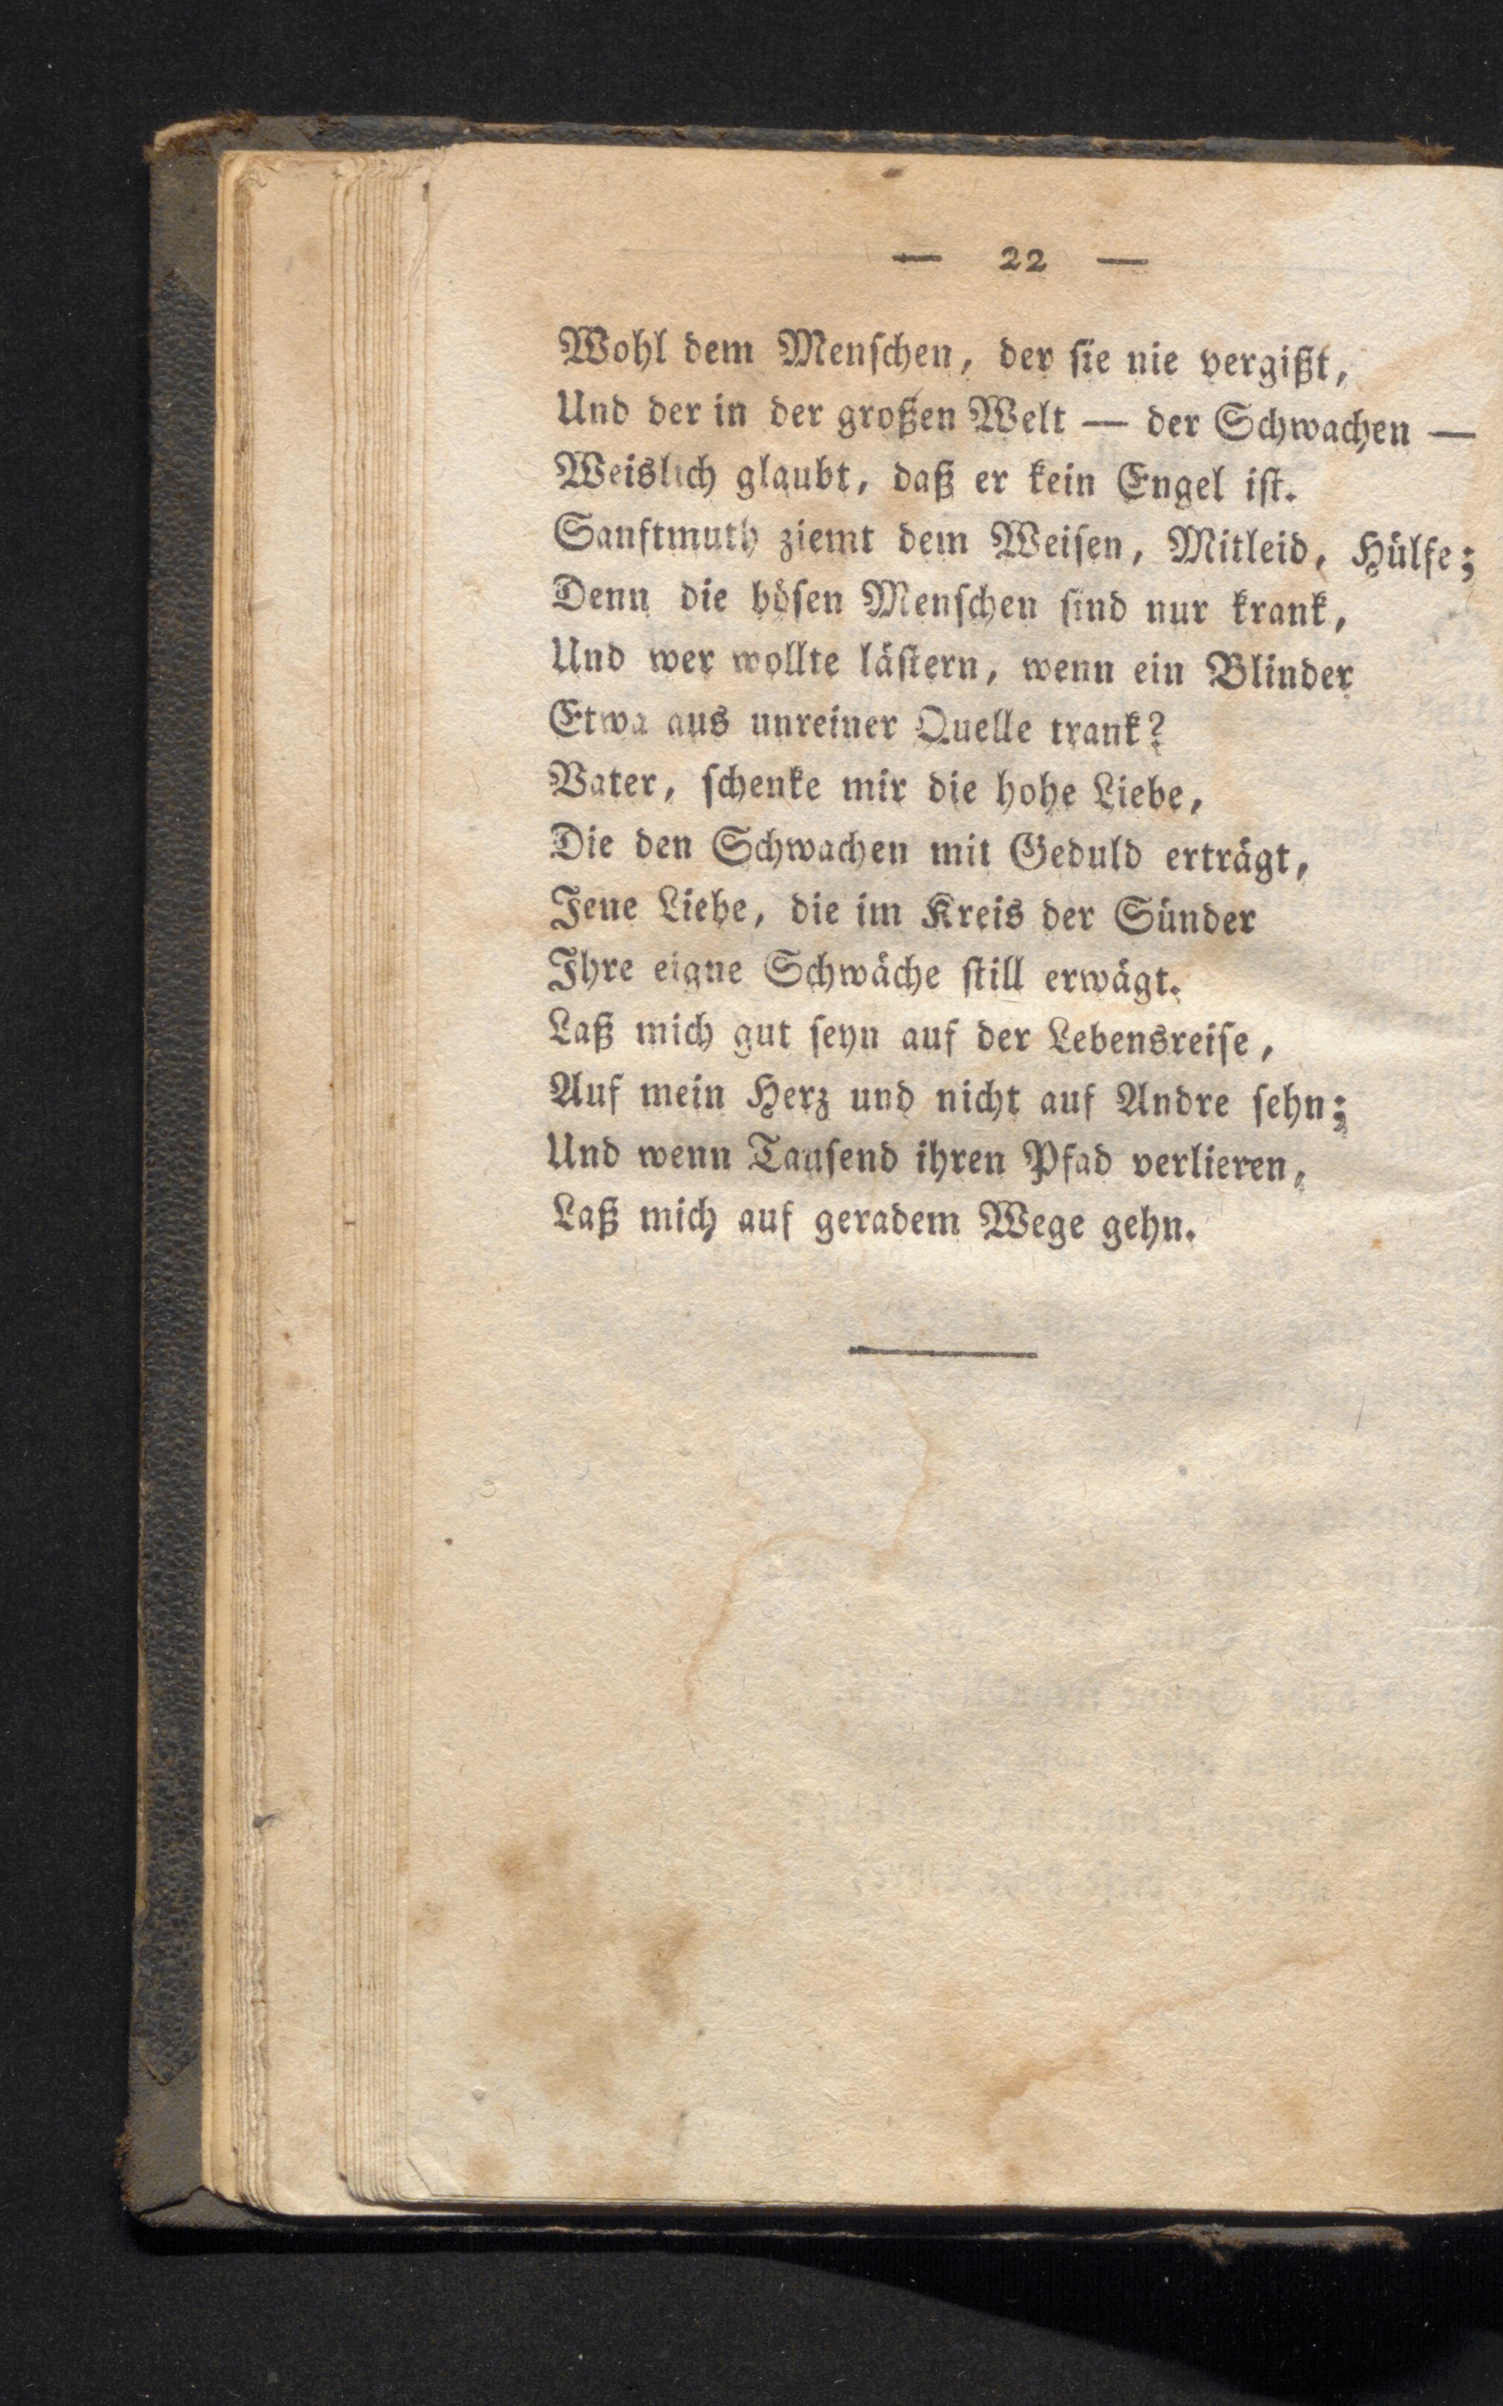 — 22 —
Wohl dem Menſchen, der ſie nie vergißt,
Und der in der großen Welt — der Schwachen —
Weislich glaubt, daß er kein Engel iſt.
Sanftmuth ziemt dem Weiſen, Mitleid, Hülfe;
Denn die böſen Menſchen ſind nur krank,
Und wer wollte läſtern, wenn ein Blinder
Etwa aus unreiner Quelle trank?
Vater, ſchenke mir die hohe Liebe,
Die den Schwachen mit Geduld erträgt,
Jene Liebe, die im Kreis der Sünder
Ihre eigne Schwäche ſtill erwägt.
Laß mich gut ſeyn auf der Lebensreiſe,
Auf mein Herz und nicht auf Andre ſehn;
Und wenn Tauſend ihren Pfad verlieren,
Laß mich auf geradem Wege gehn.